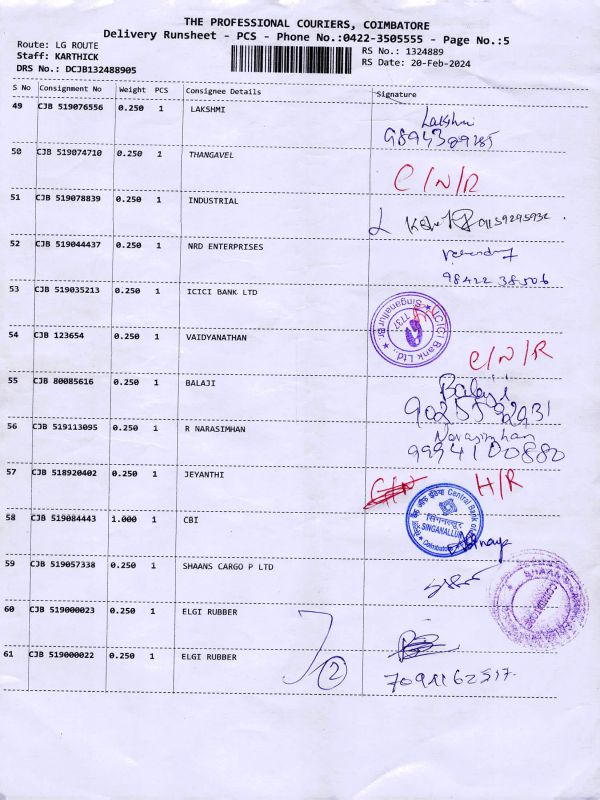 THE PROFESSIONAL COURIERS, COIMBATORE
Delivery Runsheet - PCS - Phone No.:0422-3505555 - Page No.:5
Route: LG ROUTE
Staff: KARTHICK
DRS No.: DCJB132488905
RS No.: 1324889
RS Date: 20-Feb-2024
S No Consignment No Weight PCS Consignee Details Signature
49 CJB 519076556 0.250 1 LAKSHMI Lakshmi
9894389285
50 CJB 519074710 0.250 1 THANGAVEL C/N/R
51 CJB 519078839 0.250 1 INDUSTRIAL
52 CJB 519044437 0.250 1 NRD ENTERPRISES
98422 38506
53 CJB 519035213 0.250 1 ICICI BANK LTD
ICICI Bank Ltd., Singanallur Br. 1737
54 CJB 123654 0.250 1 VAIDYANATHAN C/N/R
55 CJB 80085616 0.250 1 BALAJI Balaji
56 CJB 519113095 0.250 1 R NARASIMHAN Narasimhan
9994100880
57 CJB 518920402 0.250 1 JEYANTHI H/R
58 CJB 519084443 1.000 1 CBI
Central Bank of
SINGANALLUR
Coimbatore
59 CJB 519057338 0.250 1 SHAANS CARGO P LTD
SHAAN'S CARGO
60 CJB 519000023 0.250 1 ELGI RUBBER
2
61 CJB 519000022 0.250 1 ELGI RUBBER